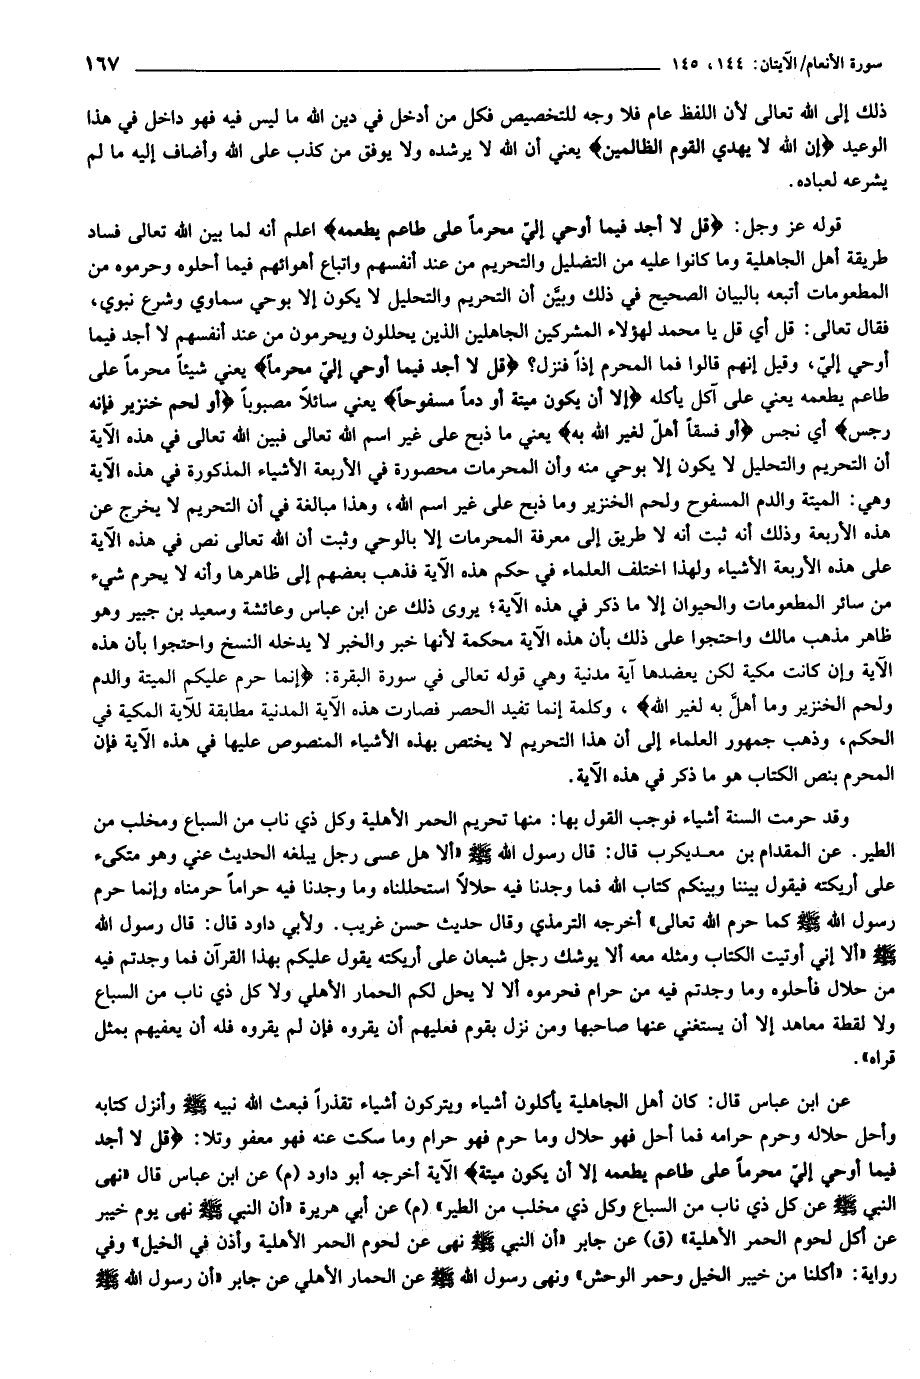 سورة الأنعام/ الآيتان: ١٤٤، ١٤٥ ١٦٧
ذلك إلى الله تعالى لأن اللفظ عام فلا وجه للتخصيص فكل من أدخل في دين الله ما ليس فيه فهو داخل في هذا
الوعيد ﴿إن الله لا يهدي القوم الظالمين﴾ يعني أن الله لا يرشده ولا يوفق من كذب على الله وأضاف إليه ما لم
يشرعه لعباده.
قوله عز وجل: ﴿قل لا أجد فيما أوحي إليّ محرماً على طاعم يطعمه﴾ اعلم أنه لما بين الله تعالى فساد
طريقة أهل الجاهلية وما كانوا عليه من التضليل والتحريم من عند أنفسهم واتباع أهوائهم فيما أحلوه وحرموه من
المطعومات أتبعه بالبيان الصحيح في ذلك وبيَّن أن التحريم والتحليل لا يكون إلا بوحي سماوي وشرع نبوي،
فقال تعالى: قل أي قل يا محمد لهؤلاء المشركين الجاهلين الذين يحللون ويحرمون من عند أنفسهم لا أجد فيما
أوحي إليّ، وقيل إنهم قالوا فما المحرم إذاً فنزل؟ ﴿قل لا أجد فيما أوحي إليّ محرماً﴾ يعني شيئاً محرماً على
طاعم يطعمه يعني على آكل يأكله ﴿إلا أن يكون ميتة أو دماً مسفوحاً﴾ يعني سائلاً مصبوباً ﴿أو لحم خنزير فإنه
رجس﴾ أي نجس ﴿أو فسقاً أهلّ لغير الله به﴾ يعني ما ذبح على غير اسم الله تعالى فبين الله تعالى في هذه الآية
أن التحريم والتحليل لا يكون إلا بوحي منه وأن المحرمات محصورة في الأربعة الأشياء المذكورة في هذه الآية
وهي: الميتة والدم المسفوح ولحم الخنزير وما ذبح على غير اسم الله، وهذا مبالغة في أن التحريم لا يخرج عن
هذه الأربعة وذلك أنه ثبت أنه لا طريق إلى معرفة المحرمات إلا بالوحي وثبت أن الله تعالى نص في هذه الآية
على هذه الأربعة الأشياء ولهذا اختلف العلماء في حكم هذه الآية فذهب بعضهم إلى ظاهرها وأنه لا يحرم شيء
من سائر المطعومات والحيوان إلا ما ذكر في هذه الآية؛ يروى ذلك عن ابن عباس وعائشة وسعيد بن جبير وهو
ظاهر مذهب مالك واحتجوا على ذلك بأن هذه الآية محكمة لأنها خبر والخبر لا يدخله النسخ واحتجوا بأن هذه
الآية وإن كانت مكية لكن يعضدها آية مدنية وهي قوله تعالى في سورة البقرة: ﴿إنما حرم عليكم الميتة والدم
ولحم الخنزير وما أهلَّ به لغير الله﴾ ، وكلمة إنما تفيد الحصر فصارت هذه الآية المدنية مطابقة للآية المكية في
الحكم، وذهب جمهور العلماء إلى أن هذا التحريم لا يختص بهذه الأشياء المنصوص عليها في هذه الآية فإن
المحرم بنص الكتاب هو ما ذكر في هذه الآية.
وقد حرمت السنة أشياء فوجب القول بها: منها تحريم الحمر الأهلية وكل ذي ناب من السباع ومخلب من
الطير. عن المقدام بن معديكرب قال: قال رسول الله ﷺ «ألا هل عسى رجل يبلغه الحديث عني وهو متكىء
على أريكته فيقول بيننا وبينكم كتاب الله فما وجدنا فيه حلالاً استحللناه وما وجدنا فيه حراماً حرمناه وإنما حرم
رسول الله ﷺ كما حرم الله تعالى» أخرجه الترمذي وقال حديث حسن غريب. ولأبي داود قال: قال رسول الله
ﷺ «ألا إني أوتيت الكتاب ومثله معه ألا يوشك رجل شبعان على أريكته يقول عليكم بهذا القرآن فما وجدتم فيه
من حلال فأحلوه وما وجدتم فيه من حرام فحرموه ألا لا يحل لكم الحمار الأهلي ولا كل ذي ناب من السباع
ولا لقطة معاهد إلا أن يستغني عنها صاحبها ومن نزل بقوم فعليهم أن يقروه فإن لم يقروه فله أن يعفيهم بمثل
قراه».
عن ابن عباس قال: كان أهل الجاهلية يأكلون أشياء ويتركون أشياء تقذراً فبعث الله نبيه ﷺ وأنزل كتابه
وأحل حلاله وحرم حرامه فما أحل فهو حلال وما حرم فهو حرام وما سكت عنه فهو معفو وتلا: ﴿قل لا أجد
فيما أوحي إليّ محرماً على طاعم يطعمه إلا أن يكون ميتة﴾ الآية أخرجه أبو داود (م) عن ابن عباس قال «نهى
النبي ﷺ عن كل ذي ناب من السباع وكل ذي مخلب من الطير» (م) عن أبي هريرة «أن النبي ﷺ نهى يوم خيبر
عن أكل لحوم الحمر الأهلية» (ق) عن جابر «أن النبي ﷺ نهى عن لحوم الحمر الأهلية وأذن في الخيل» وفي
رواية: «أكلنا من خيبر الخيل وحمر الوحش» ونهى رسول الله ﷺ عن الحمار الأهلي عن جابر «أن رسول الله ﷺ